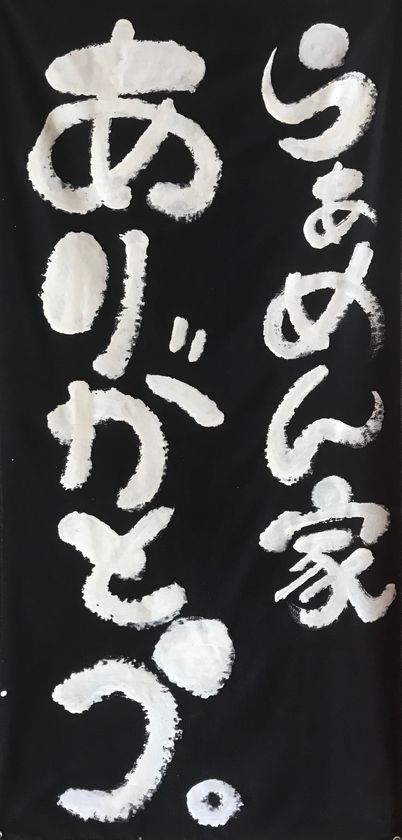 らぁめん家
ありがとう。